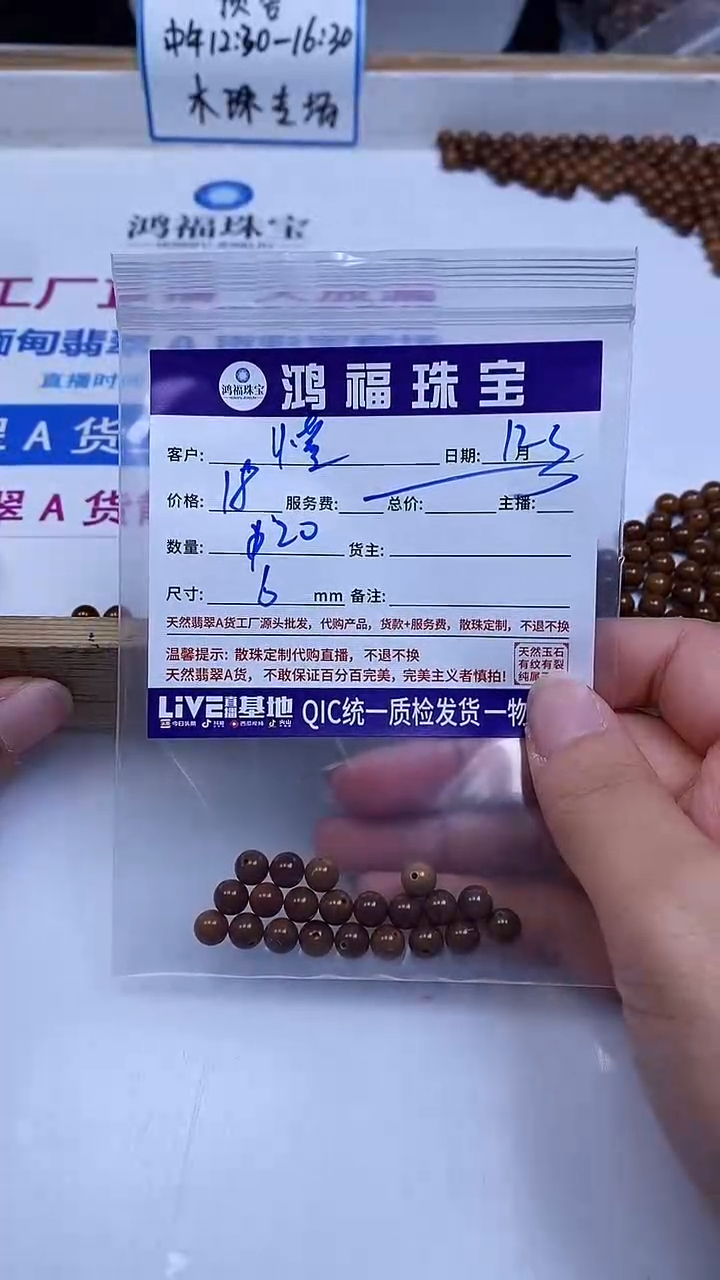 预告
中午12:30—16:30
木珠专场
鸿福珠宝
工厂直播
缅甸翡翠 A
直播时间
翠 A 货
翠 A 货
鸿福珠宝 鸿福珠宝
客户: 日期: 12月5
价格: 18 服务费: 总价: 主播:
数量: 20 货主:
尺寸: 6 mm 备注:
天然翡翠A货工厂源头批发，代购产品，货款+服务费，散珠定制，不退不换
温馨提示: 散珠定制代购直播，不退不换
天然翡翠A货，不敢保证百分百完美，完美主义者慎拍!
天然玉石
有纹有裂
纯属
LiVE直播基地 QIC统一质检发货一物
今日头条 抖音 西瓜视频 火山